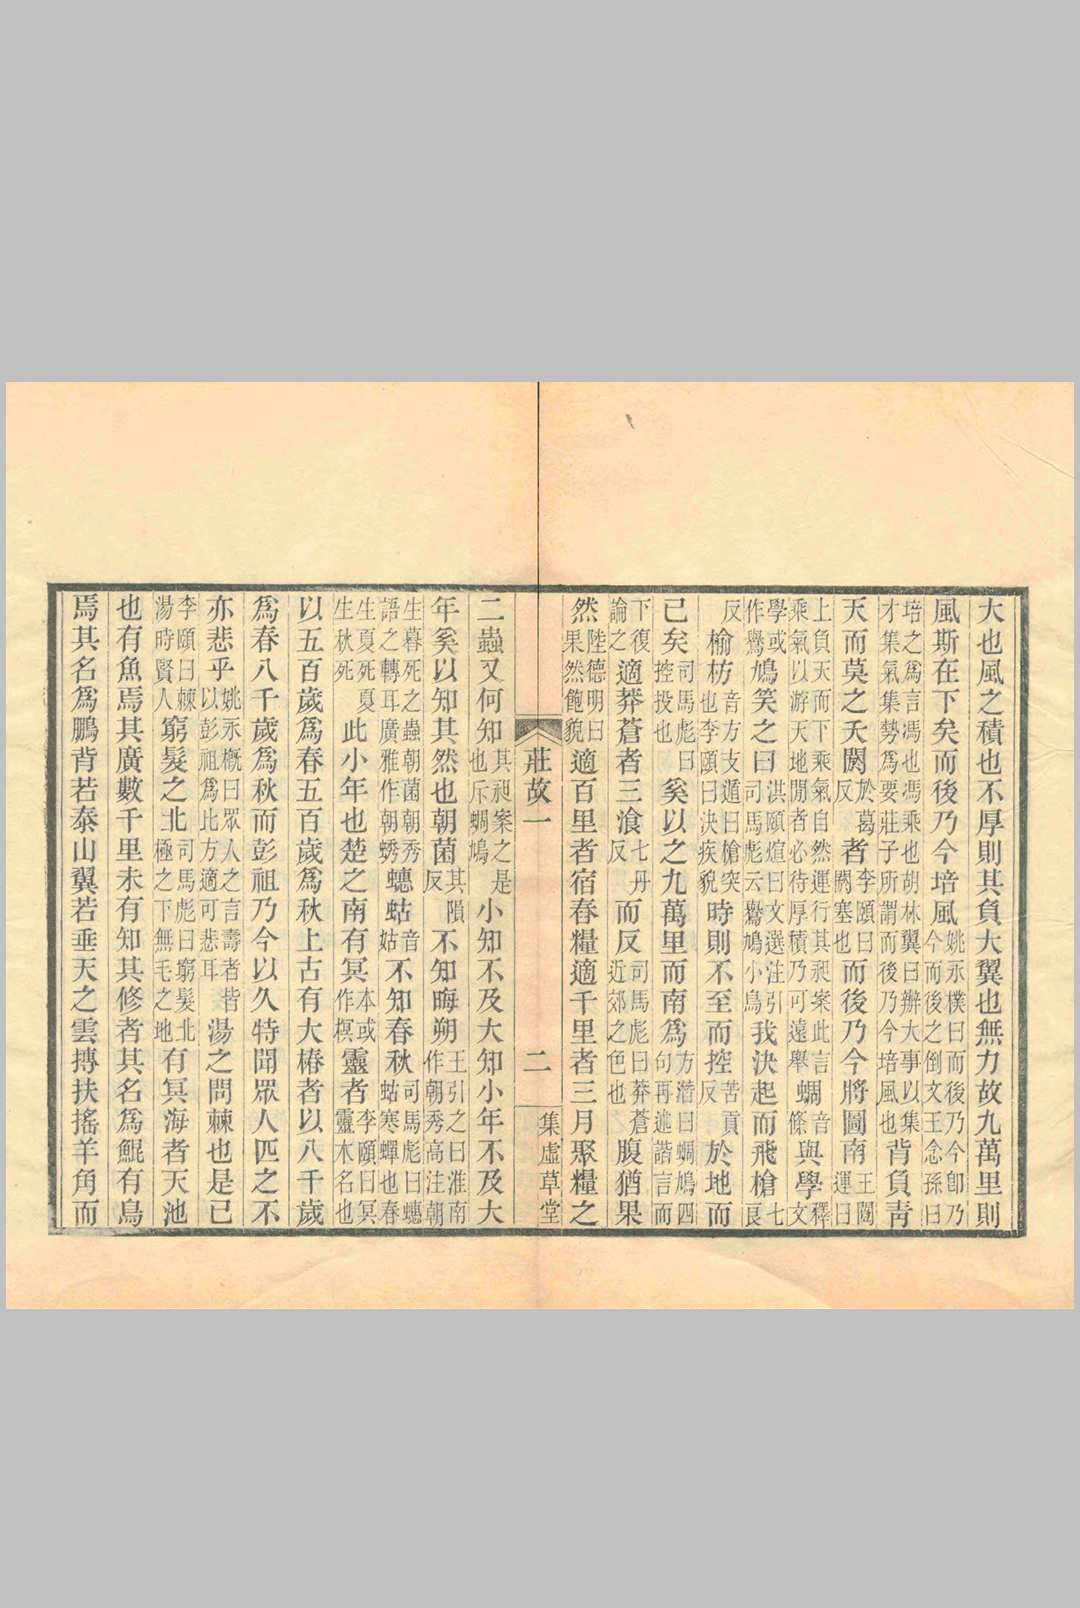 大也風之積也不厚則其負大翼也無力故九萬里則
風斯在下矣而後乃今培風姚永樸曰而後乃今卽乃今而後之倒文王念孫曰
培之爲言馮也馮乘也胡林翼曰辦大事以集才集氣集勢爲要莊子所謂而後乃今培風也背負靑
天而莫之夭閼於葛反者李頤曰閼塞也而後乃今將圖南王闓運曰
上負天而下乘氣自然運行其昶案此言乘氣以游天地閒者必待厚積乃可遠舉蜩音條與學釋文
學或作鷽鳩笑之曰淇頤煊曰文選注引司馬彪云鷽鳩小鳥我決起而飛槍七良
反榆枋音方支遁曰槍突也李頤曰決疾貌時則不至而控苦貢反於地而
已矣司馬彪曰控投也奚以之九萬里而南爲方潛曰蜩鳩四句再述諧言而
下復論之適莽蒼者三湌七丹反而反司馬彪曰莽蒼近郊之色也腹猶果
然陸德明曰果然飽貌適百里者宿舂糧適千里者三月聚糧之
莊故一
二
集虛草堂
二蟲又何知其昶案之是也斥蜩鳩小知不及大知小年不及大
年奚以知其然也朝菌其隕反不知晦朔王引之曰淮南作朝秀高注朝
生暮死之蟲朝菌朝秀語之轉耳廣雅作朝蜏蟪蛄音姑不知春秋司馬彪曰蟪蛄寒蟬也春
生夏死夏生秋死此小年也楚之南有冥本或作榠靈者李頤曰冥靈木名也
以五百歲爲春五百歲爲秋上古有大椿者以八千歲
爲春八千歲爲秋而彭祖乃今以久特聞眾人匹之不
亦悲乎姚永概曰眾人之言壽者皆以彭祖爲比方適可悲耳湯之問棘也是已
李頤曰棘湯時賢人窮髮之北司馬彪曰窮髮北極之下無毛之地有冥海者天池
也有魚焉其廣數千里未有知其修者其名爲鯤有鳥
焉其名爲鵬背若泰山翼若垂天之雲摶扶搖羊角而